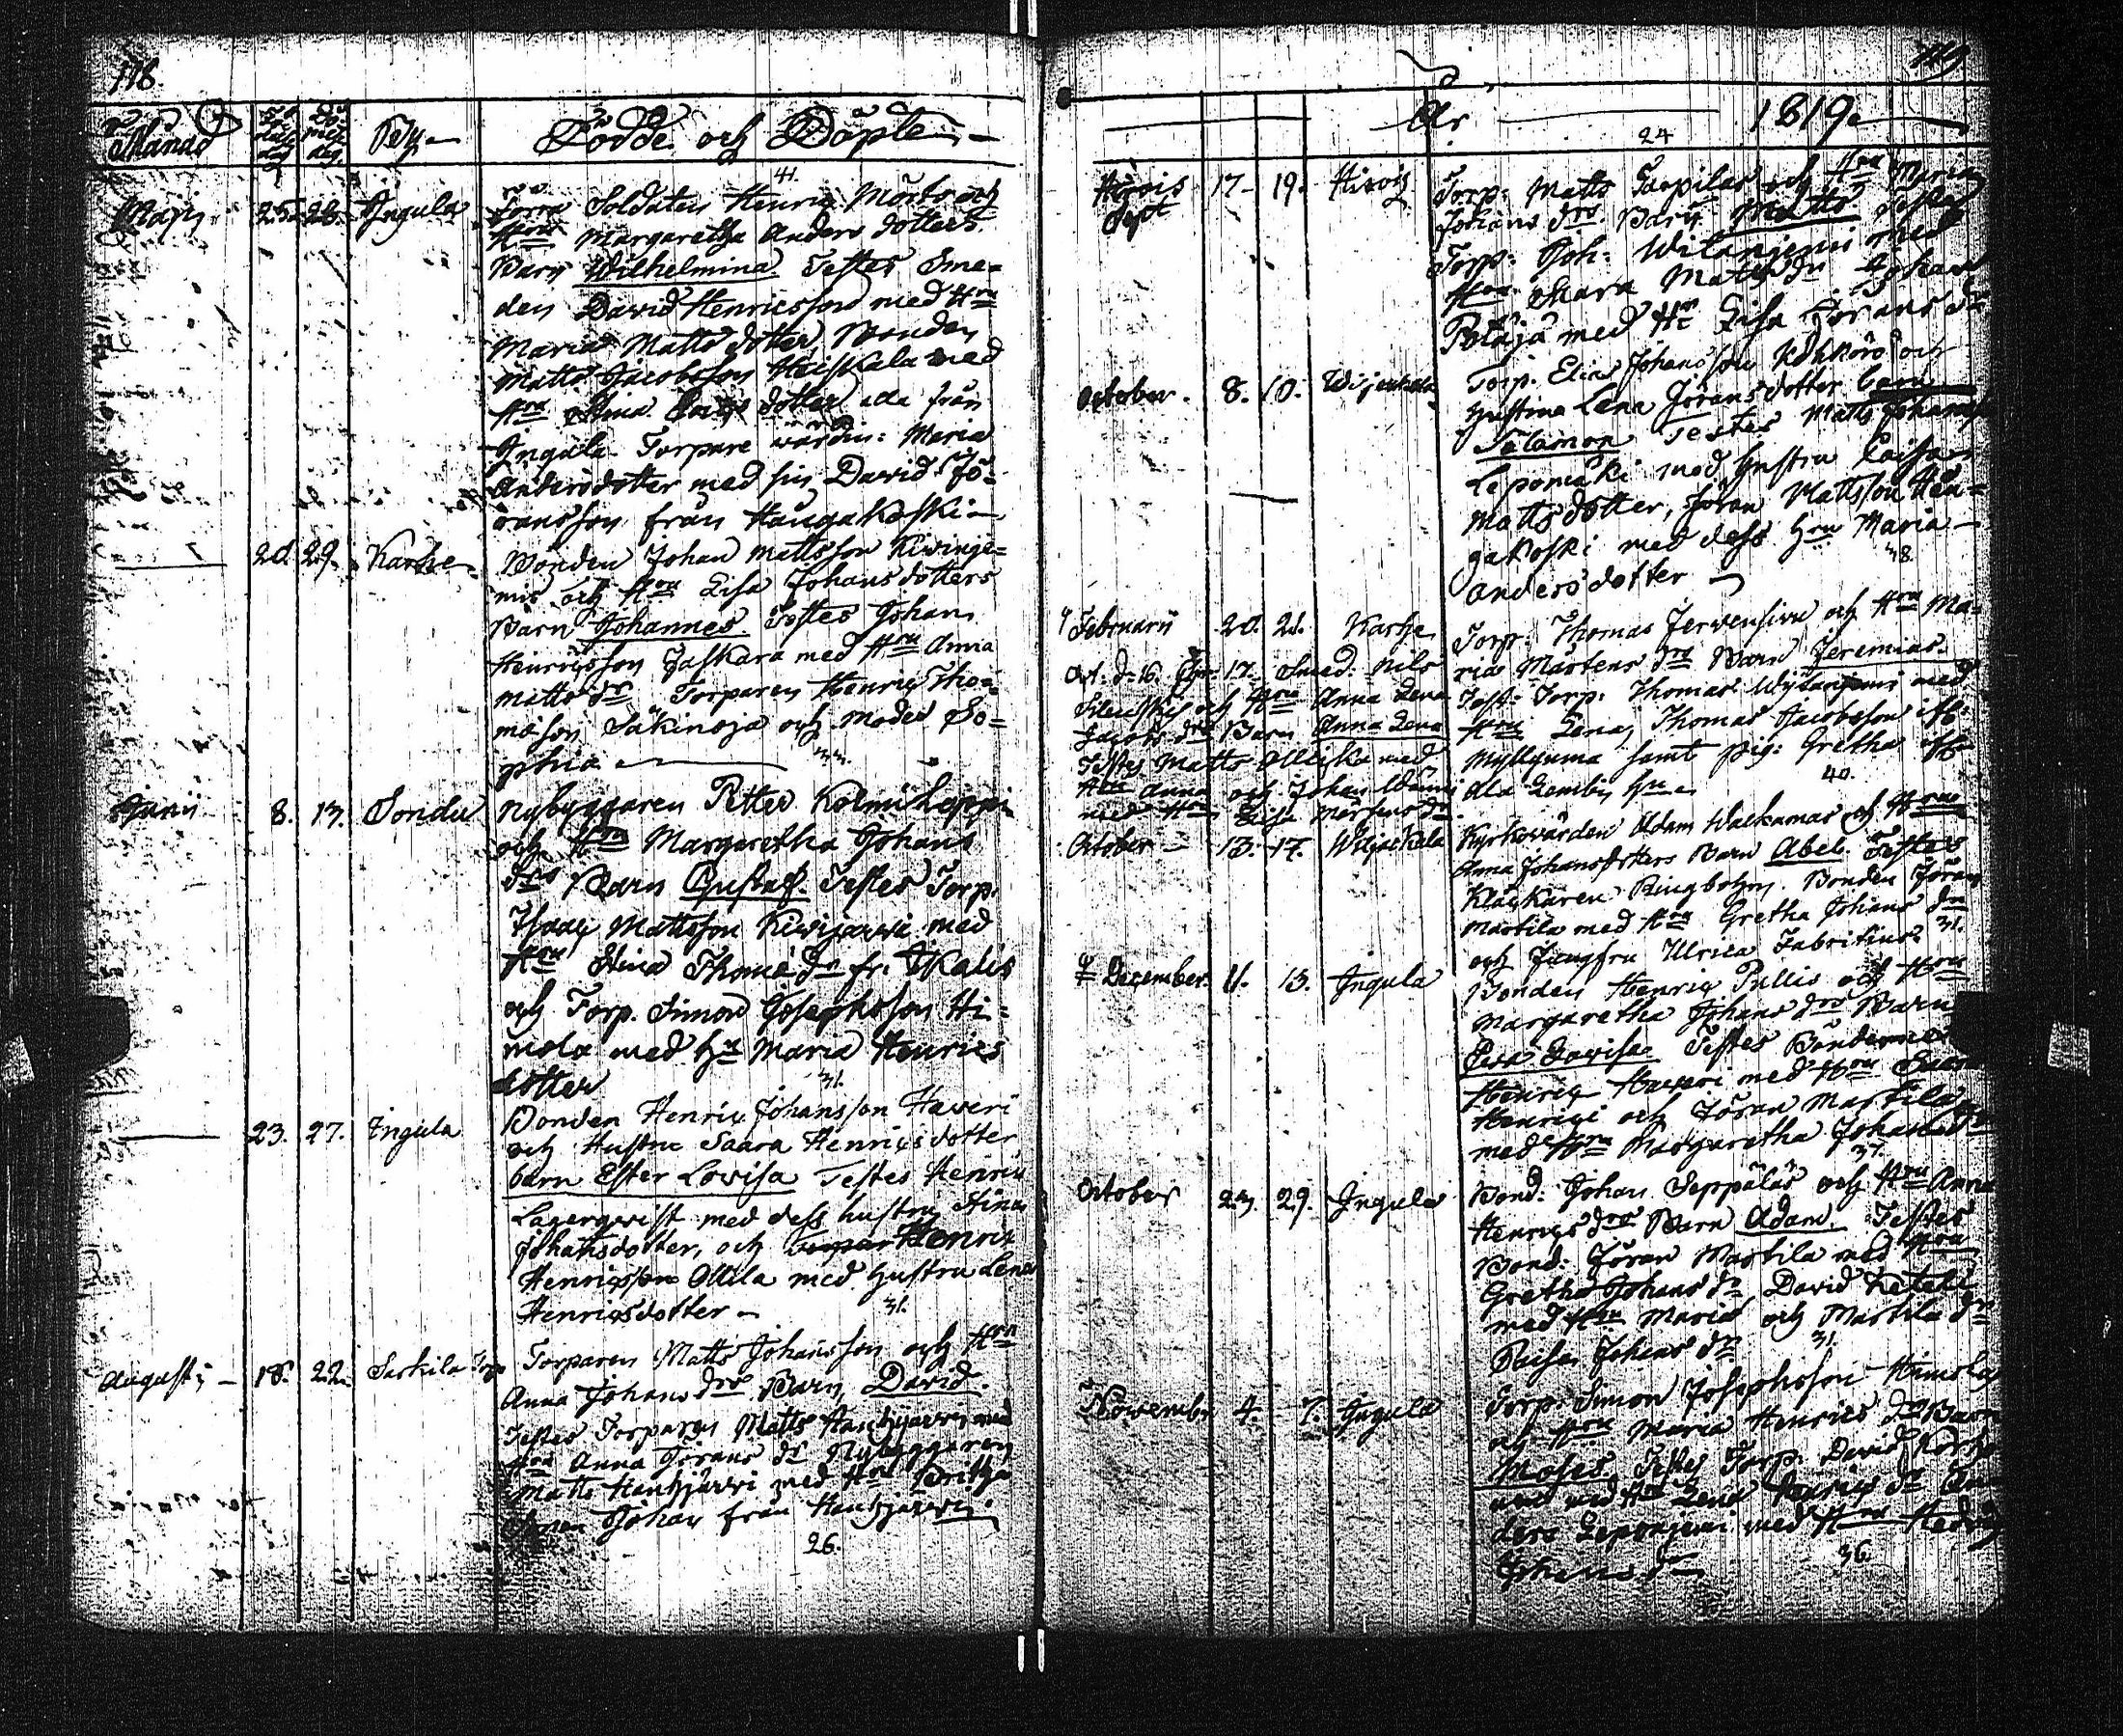 118.
Månad
Födelse dag
Döpelse dag.
By.
Födde och Döpte
Maji 25. 28. Ingula
41.
Förra Soldaten Henric Mört och
Hru Margaretha Anders dotters
Barn Wilhelmina. Testes Sme-
den David Henricsson med Hru
Maria Matts dotter Bonden
Matts Jacobsson Heiskala med
Hru Stina dotter alla från
Ingula Torpare wärdin: Maria
Andersdotter med sin David Jö-
ransson från Haugakoski
— 28. 29. Karhe
Bonden Johan Mattsson Kiwinje-
mis och Hru Lisa Johansdotters
Barn Johannes. Testes Johan
Henricsson Jaskara med Hru Anna
Matts dr Torparen Henric Tho-
masson Säkinoja och Moder So-
phia
34.
Junii 8. 13. Jondu
Nybyggaren Petter Kolmiheppi
och Hru Margaretha Johans
drs Barn Gustaf. Testes Torp.
Isaac Mattsson Kiwijärwi med
Hru Stina Thomæ dr fr. Ikalis
och Torp. Simon Josephsson Hi-
mola med Hu Maria Henrics
dotter
31.
— 23. 27. Ingula
Bonden Henric Johansson Haweri
och Hustru Saara Henricsdotter
barn Ester Lovisa Testes Henric
Lagerqwist med dess hustru Stina
Johansdotter, och Henric
Henricsson Ollila med Hustru Lena
Henricsdotter
31.
Augusti 18. 22. Sarkila Torp
Torparen Matts Johansson och Hru
Anna Johans drs Barn David.
Testes Torparen Matts Hanhijärwi med
Hru Anna Jörans dr Nybyggaren
Matts Hanhijärwi med Hru Britha
Johan från Hanhijärwi.
26.
119
År 1819.
24
Hirvis
Sept 17 19. Hirvis
Torp: Matts Tarpilas och Hru Maria
Johans drs Barn Matts Testes
Torp: Joh: Witaniemi med
Hru Maria Matts dr Johan
Petäjä med Hr Lisa Jörans dr
October. 8. 10. Wiljakkala
Torp. Elias Johansson Kohkörö och
Hustrus Lena Jörans dotter barn
Salamon Testes Matts Johansson
Lepomäki med Hustru Caisa
Mattsdotter, Jöran Mattsson Hau-
gakoski med dess Hru Maria
Andersdotter
38.
Februarii 20. 21. Karhe
Torp: Thomas Jerwensiwu och Hru Ma-
ria Mårtens drs Barn Jeremias.
Test: Torp: Thomas Wijtaniemi med
Hru Lena, Thomas Jacobsson
Myllyuma samt pig: Gretha
alla Lemby
40.
Oct. d. 16. Chr. 17. Smed: Nils
och Hru Anna Lena
Jacobs drs Barn Anna Lena
Testes Matts Ollikka med
Hru Anna och Johan
med Hru Lisa Mårtens dr.
October 13. 17. Wiljackala
Kyrkowärden Adam Walkamas och Hru
Anna Johansdotters Barn Abel. Testes
Klåckaren Ringbohm. Bonden Jöran
Martila med Hru Gretha Johans dr
och Jungfru Ulrica Fabritius
31.
December. 11. 13. Ingula
Bonden Henric Pullis och Hru
Margaretha Johans drs Barn
Eva Lovisa. Testes Bönderne
Henric Haweri med Hru Saara
Henrici och Jöran Martila
med Hru Margaretha Johans dr
37.
October 23. 29. Ingula
Bond: Johan Seppäläs och Hru Anna
Henrics drs Barn Adam. Testes
Bond: Jöran Martila med Hru
Gretha Johans dr, David Ketela
med Hru Maria och Martila dr
Caisa Johans dr
31.
November 4. 7. Ingula
Torp: Simon Josephsson Himolas
och Hru Maria Henrics drs Barn
Moses Testes Torp. David
med Hru Lena Henrics dr An-
ders Leponiemi med Hru Hedvig
Johans dr
36.